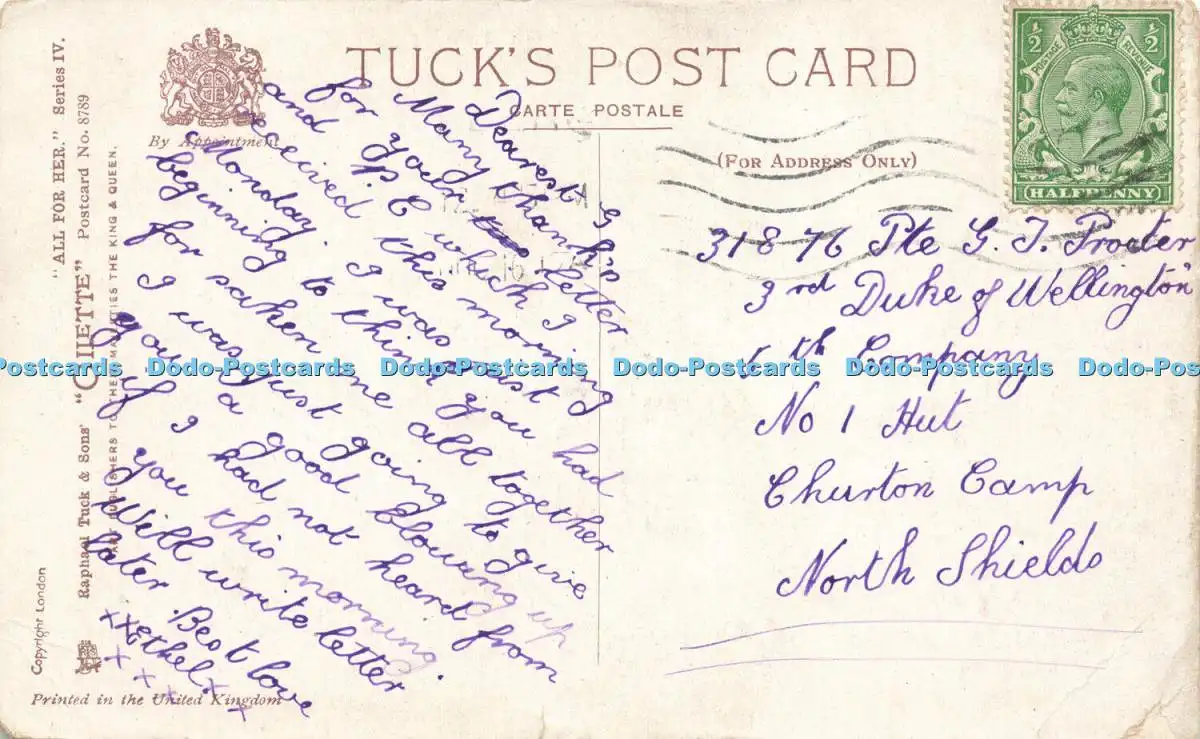 TUCK'S POST CARD
CARTE POSTALE
By Appointment
(FOR ADDRESS ONLY)
½ ½
POSTAGE REVENUE
HALFPENNY
"ALL FOR HER." Series IV.
Raphael Tuck & Sons' " Postcard No. 8789
TO THEIR MAJESTIES THE KING & QUEEN.
Copyright London
Printed in the United Kingdom
Dearest G
Many thanks
for your letter
and P/C which I
received this morning
Monday. I was just
beginning to think you had
forsaken me all together
I was just going to give
you a good blowing up
if I had not heard from
you this morning.
Will write letter
later. Best love
xxx Ethel x
x x x x
31876 Pte G. J. Procter
3rd Duke of Wellington
5th Company
No 1 Hut
Churton Camp
North Shields
Dodo-Postcards Dodo-Postcards Dodo-Postcards Dodo-Postcards Dodo-Postcards Dodo-Pos